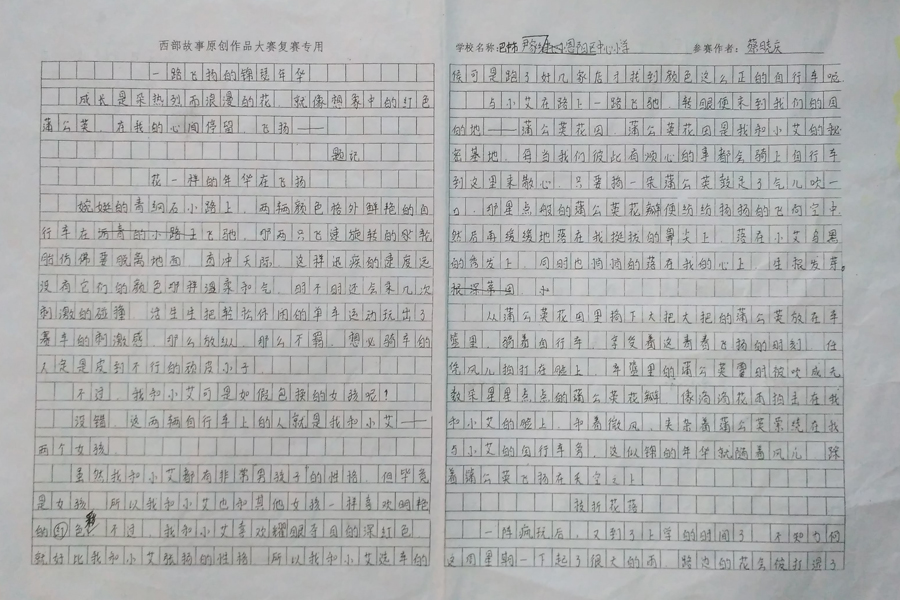 西部故事原创作品大赛复赛专用
一路飞扬的锦瑟年华
成长是朵热烈而浪漫的花,就像想象中的红色
蒲公英,在我的心间停留、飞扬——
题记
花一样的年华在飞扬
婉娩的青纲石小路上,两辆颜色格外鲜艳的自
行车在沥青的小路上飞驰,那两只飞速旋转的软轮
胎仿佛要脱离地面,直冲天际。这样迅疾的速度远
没有它们的颜色那样温柔和气,时不时还会来几次
刺激的碰撞,活生生把轻松休闲的单车运动玩出了
赛车的刺激感。那么放纵,那么不羁,想必骑车的
人定是皮到不行的顽皮小子。
不过,我和小艾可是如假包换的女孩呢!
没错,这两辆自行车上的人就是我和小艾——
两个女孩。
虽然我和小艾都有非常男孩子的性格,但毕竟
是女孩,所以我和小艾也和其他女孩一样喜欢明艳
的色彩。不过,我和小艾喜欢耀眼夺目的深红色,
就好比我和小艾张扬的性格,所以我和小艾选车的
学校名称:巴中市恩阳区中心小学 参赛作者:蔡晓庆
候可是跑了好几家店才找到颜色这么正的自行车呢。
与小艾在路上一路飞驰,转眼便来到我们的目
的地——蒲公英花田。蒲公英花田是我和小艾的秘
密基地,每当我们彼此有烦心的事都会骑上自行车
到这里来散心,只要摘一朵蒲公英鼓足了气儿吹一
口,那星点般的蒲公英花瓣便纷纷扬扬的飞向空中,
然后再缓缓地落在我挺拔的鼻尖上,落在小艾乌黑
的秀发上,同时也悄悄的落在我的心上,生根发芽。
从蒲公英花田里摘下大把大把的蒲公英放在车
篮里,骑着自行车,享受着这青春飞扬的时刻,任
凭风儿拍打在脸上,车篮里的蒲公英霎时被吹成无
数朵星星点点的蒲公英花瓣,像滴滴花雨拍击在我
和小艾的脸上,和着微风,夹杂着蒲公英萦绕在我
与小艾的自行车旁,这似锦的年华就随着风儿,踩
着蒲公英飞扬在天空之上。
教折花落
一阵疯玩后,又到了上学的时间了,不知为何
这周星期一下起了很大的雨,路边的花会被打湿了